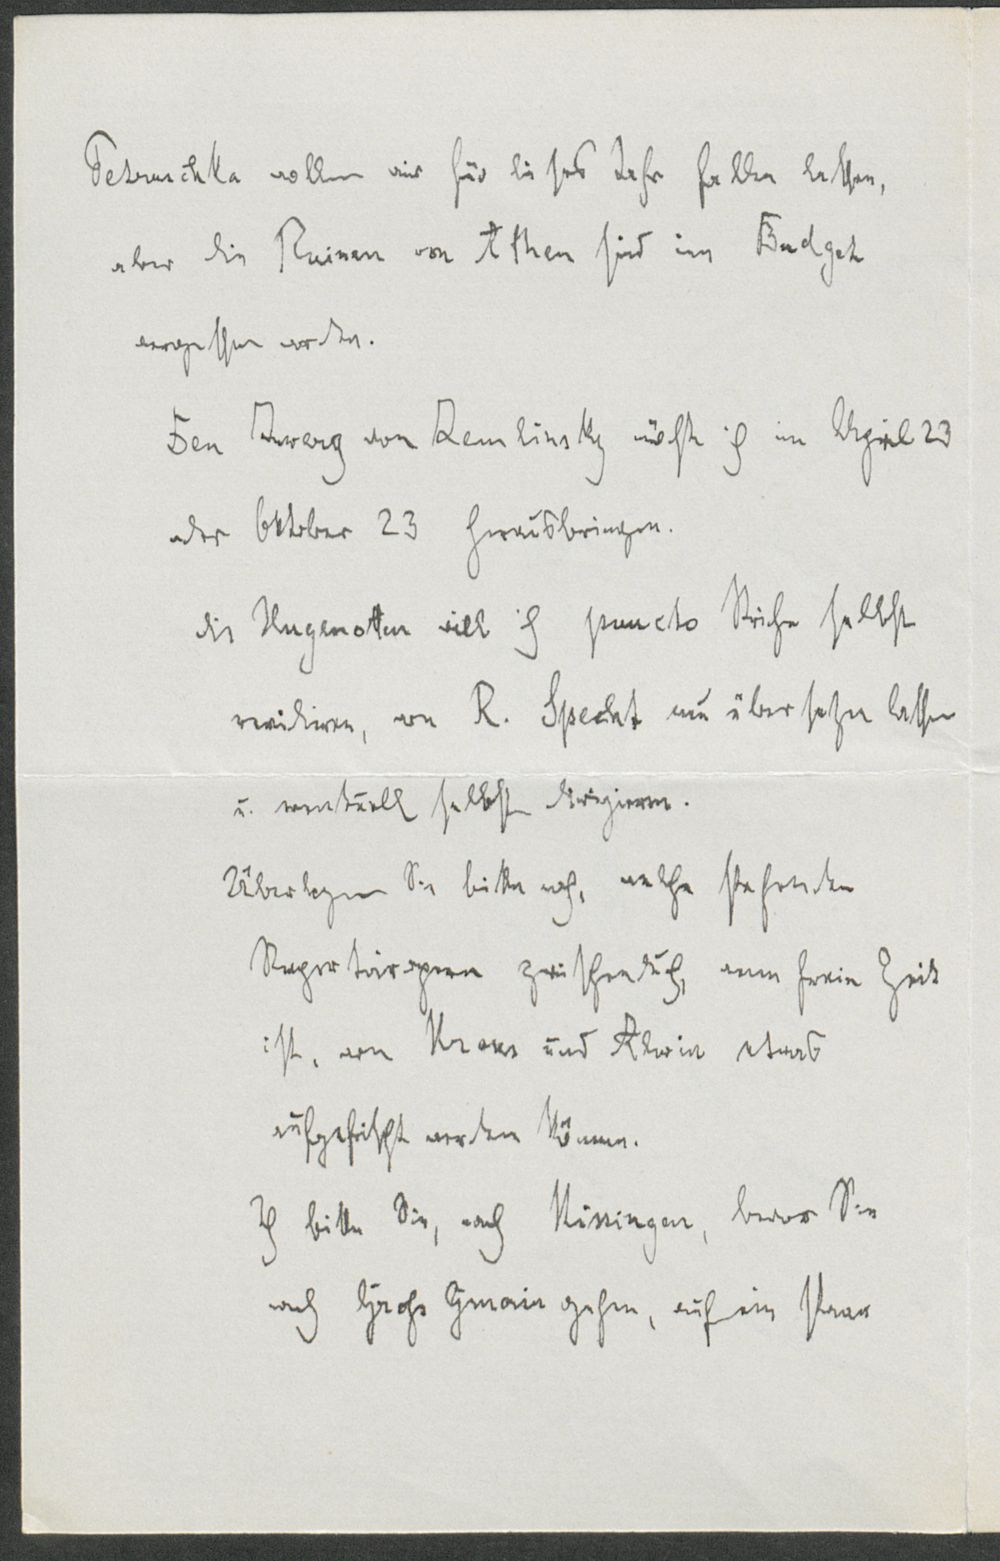 Petruschka wollen wir für dieses Jahr fallen lassen,
aber die Ruinen von Athen sind im Budget
vergessen worden.
Den Zwerg von Zemlinsky möchte ich im April 23
oder Oktober 23 herausbringen.
die Hugenotten will ich puncto Striche selbst
revidieren, von R. Specht neu übersetzen lassen
u. eventuell selbst dirigieren.
Überlegen Sie bitte noch, welche stehenden
Repertoiropern zwischendurch, wenn freie Zeit
ist, von Krauss und Alwin etwas
aufgefrischt werden können.
Ich bitte Sie, nach Kissingen, bevor Sie
nach Groß Gmain gehen, auf ein Paar